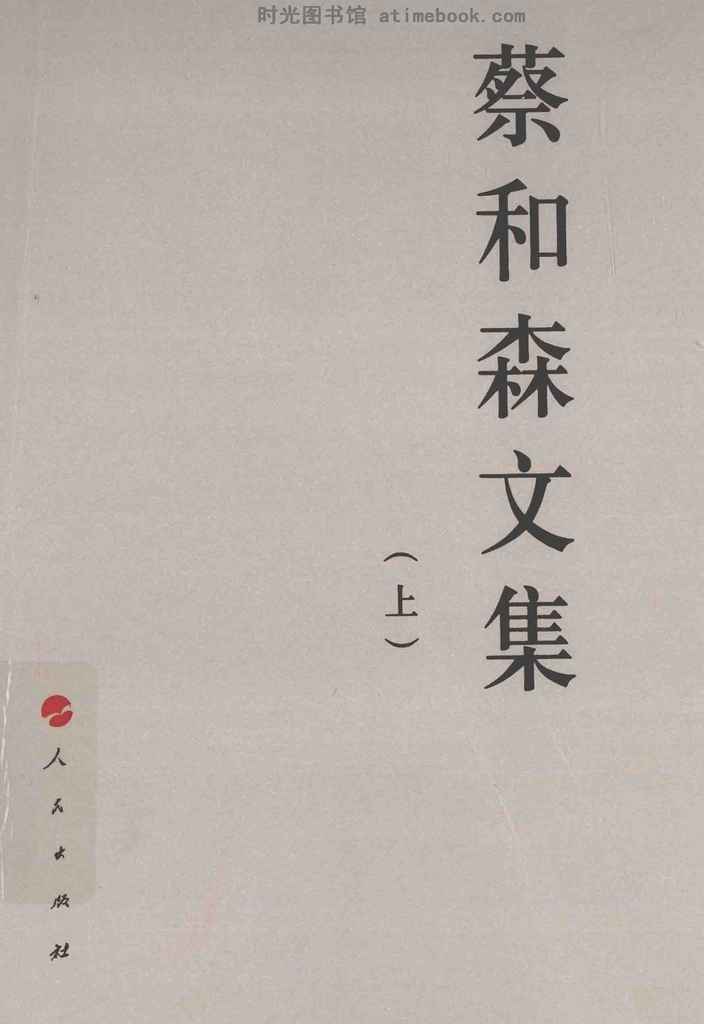 时光图书馆 atimebook.com
蔡和森文集
（上）
人民出版社